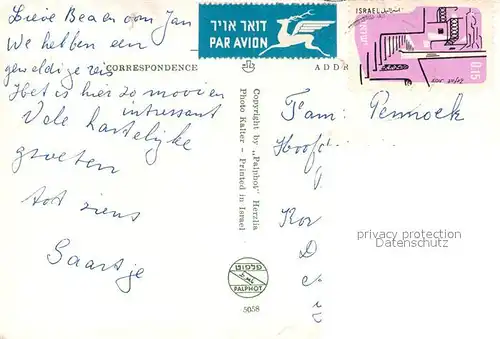 Lieve Bea en oom Jan
We hebben een
geweldige reis
Het is hier zo mooi en
intressant
Vele hartelijke
groeten
tot ziens
Saartje
CORRESPONDENCE
דואר אויר
PAR AVION
ISRAEL
0.15
ADDR
Fam: Pennock
Hoofd
Kor
D
privacy protection
Datenschutz
Copyright by „Palphot" Herzlia
Photo Kalter - Printed in Israel
פלפוט
PALPHOT
5058